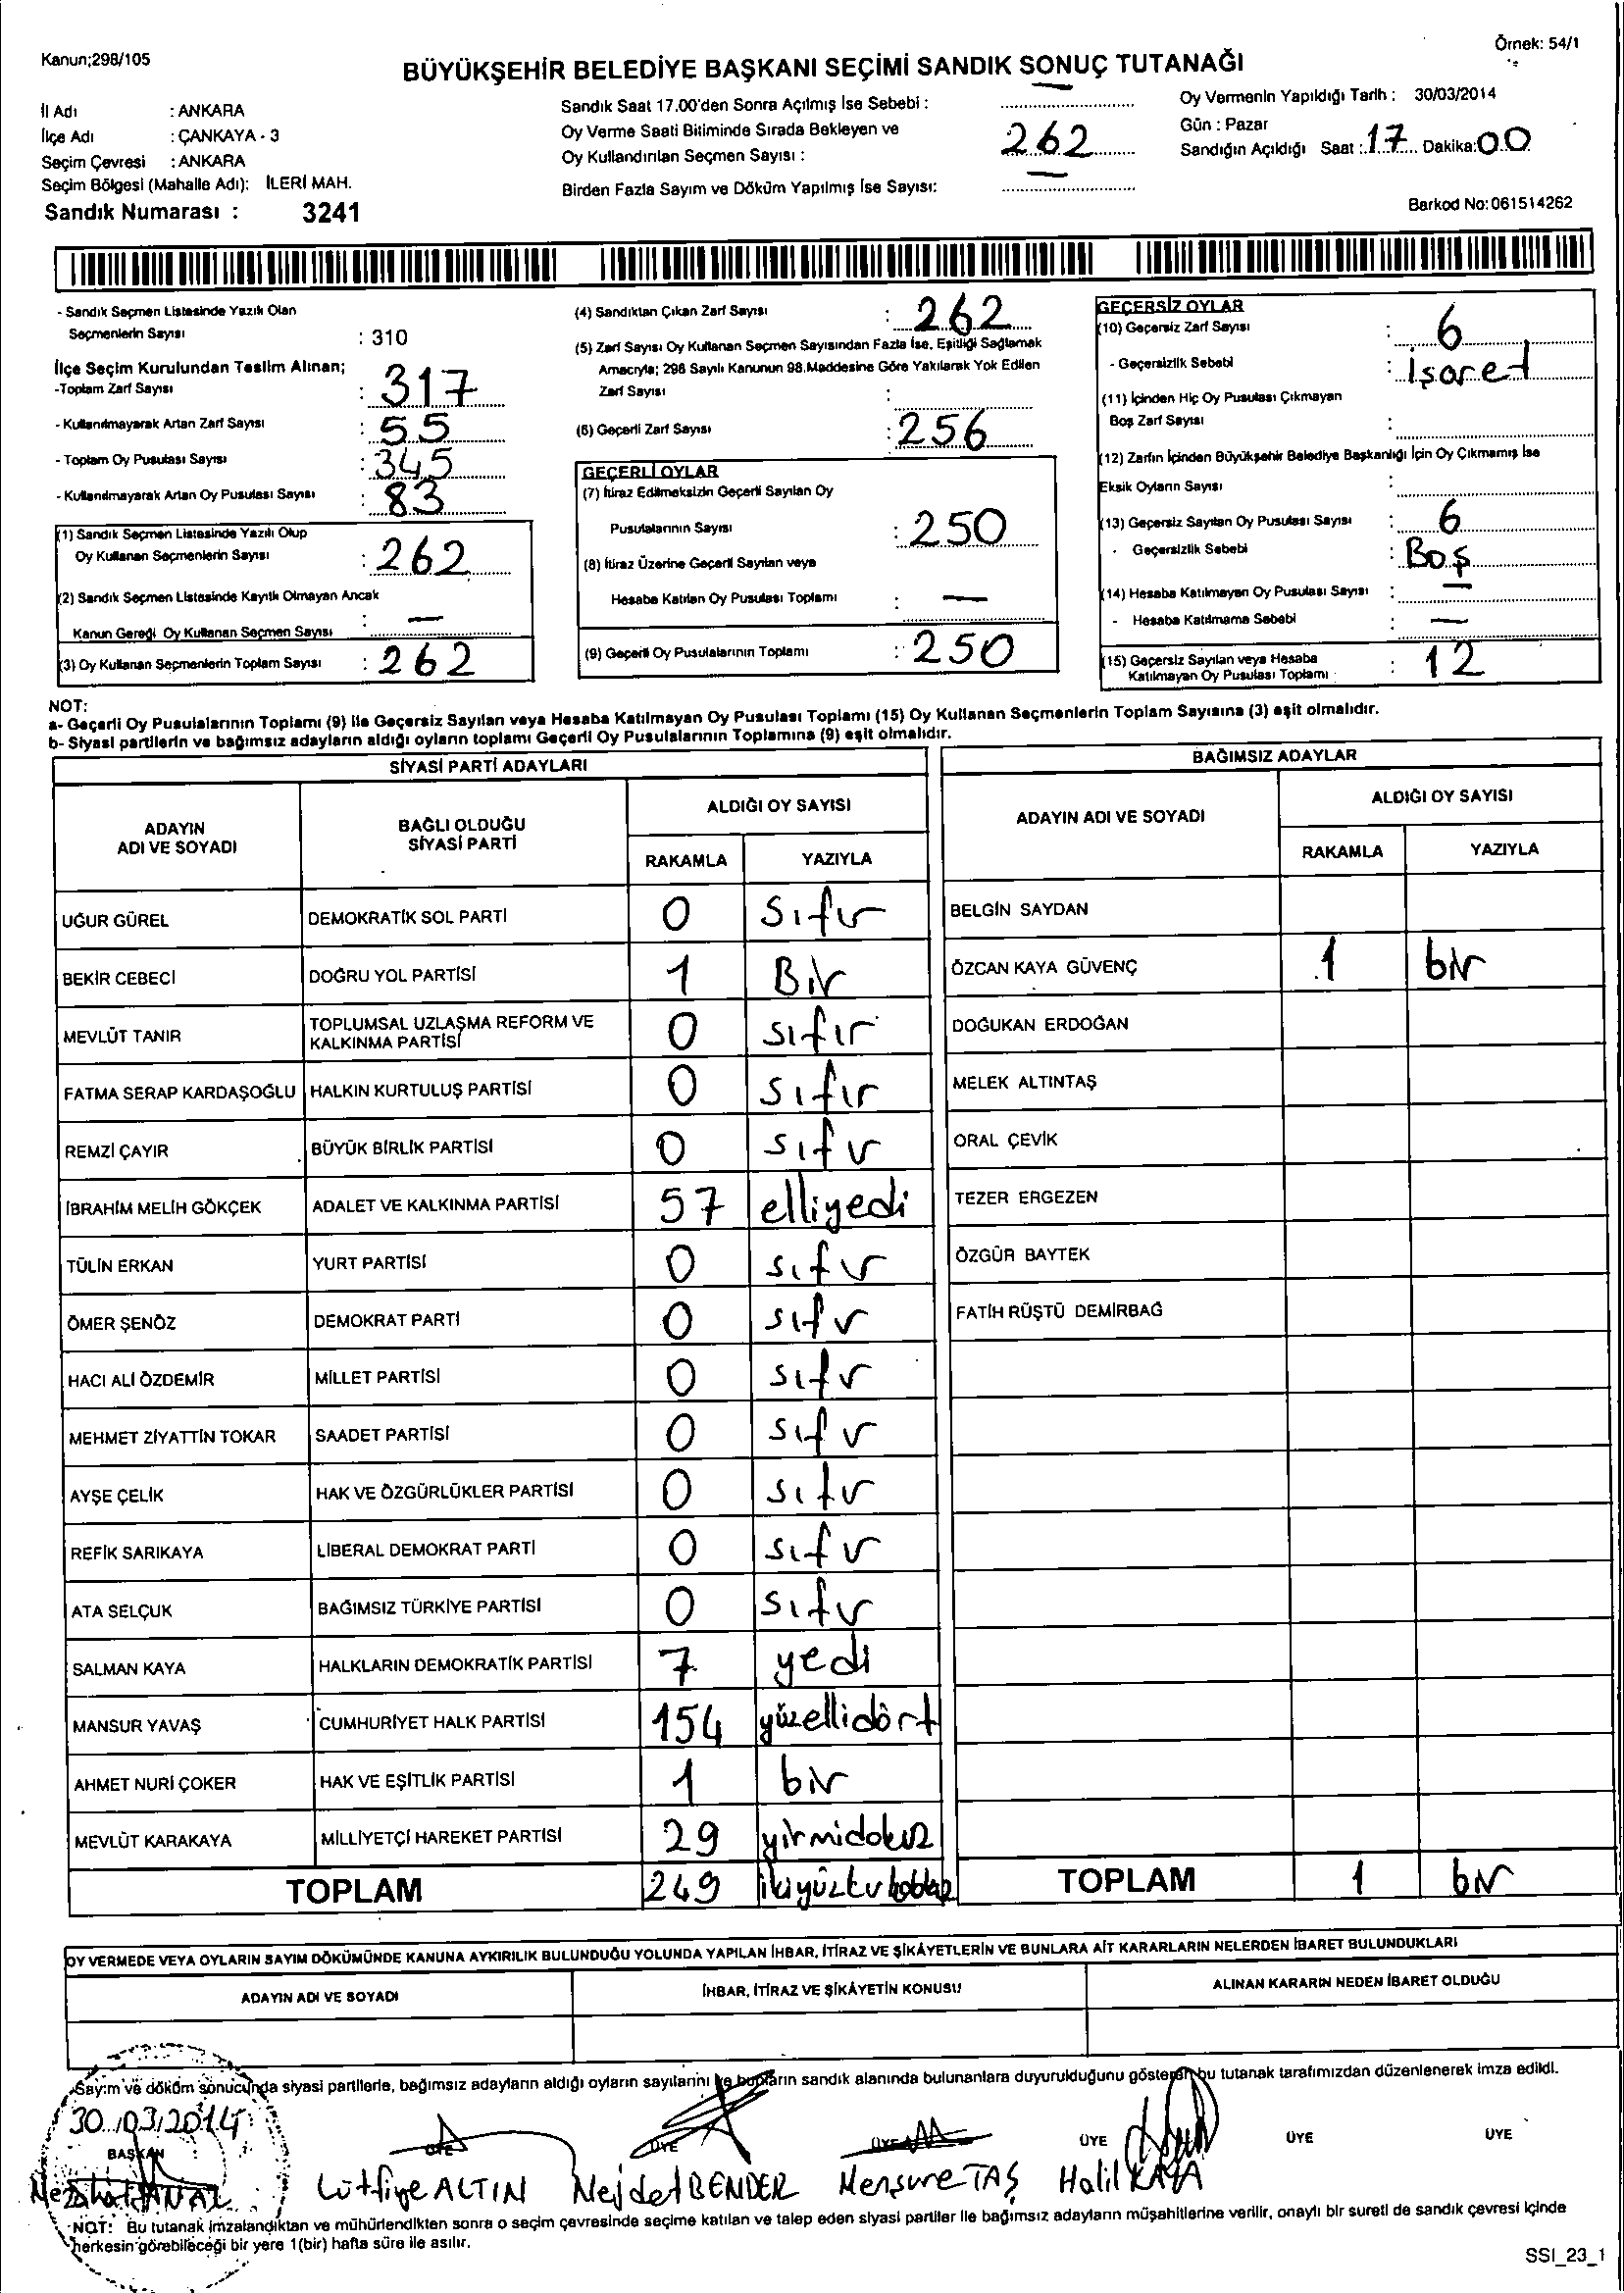 Kanun;298/105
Örnek: 54/1
BÜYÜKŞEHİR BELEDİYE BAŞKANI SEÇİMİ SANDIK SONUÇ TUTANAĞI
İl Adı : ANKARA
İlçe Adı : ÇANKAYA - 3
Seçim Çevresi : ANKARA
Seçim Bölgesi (Mahalle Adı): İLERİ MAH.
Sandık Numarası : 3241
Sandık Saat 17.00'den Sonra Açılmış İse Sebebi : —
Oy Verme Saati Bitiminde Sırada Bekleyen ve
Oy Kullandırılan Seçmen Sayısı : 262
Birden Fazla Sayım ve Döküm Yapılmış İse Sayısı: —
Oy Vermenin Yapıldığı Tarih : 30/03/2014
Gün : Pazar
Sandığın Açıldığı Saat : 17 Dakika: 00
Barkod No: 061514262
- Sandık Seçmen Listesinde Yazılı Olan
Seçmenlerin Sayısı : 310
İlçe Seçim Kurulundan Teslim Alınan;
-Toplam Zarf Sayısı : 317
- Kullanılmayarak Artan Zarf Sayısı : 55
- Toplam Oy Pusulası Sayısı : 345
- Kullanılmayarak Artan Oy Pusulası Sayısı : 83
(1) Sandık Seçmen Listesinde Yazılı Olup
Oy Kullanan Seçmenlerin Sayısı : 262
(2) Sandık Seçmen Listesinde Kayıtlı Olmayan Ancak
Kanun Gereği Oy Kullanan Seçmen Sayısı : —
(3) Oy Kullanan Seçmenlerin Toplam Sayısı : 262
(4) Sandıktan Çıkan Zarf Sayısı : 262
(5) Zarf Sayısı Oy Kullanan Seçmen Sayısından Fazla İse, Eşitliği Sağlamak
Amacıyla; 298 Sayılı Kanunun 98.Maddesine Göre Yakılarak Yok Edilen
Zarf Sayısı :
(6) Geçerli Zarf Sayısı : 256
GEÇERLİ OYLAR
(7) İtiraz Edilmeksizin Geçerli Sayılan Oy
Pusulalarının Sayısı : 250
(8) İtiraz Üzerine Geçerli Sayılan veya
Hesaba Katılan Oy Pusulası Toplamı : —
(9) Geçerli Oy Pusulalarının Toplamı : 250
GEÇERSİZ OYLAR
(10) Geçersiz Zarf Sayısı : 6
- Geçersizlik Sebebi : işaret
(11) İçinden Hiç Oy Pusulası Çıkmayan
Boş Zarf Sayısı :
(12) Zarfın İçinden Büyükşehir Belediye Başkanlığı İçin Oy Çıkmamış İse
Eksik Oyların Sayısı :
(13) Geçersiz Sayılan Oy Pusulası Sayısı : 6
- Geçersizlik Sebebi : Boş
(14) Hesaba Katılmayan Oy Pusulası Sayısı : —
- Hesaba Katılmama Sebebi : —
(15) Geçersiz Sayılan veya Hesaba
Katılmayan Oy Pusulası Toplamı : 12
NOT:
a- Geçerli Oy Pusulalarının Toplamı (9) ile Geçersiz Sayılan veya Hesaba Katılmayan Oy Pusulası Toplamı (15) Oy Kullanan Seçmenlerin Toplam Sayısına (3) eşit olmalıdır.
b- Siyasi partilerin ve bağımsız adayların aldığı oyların toplamı Geçerli Oy Pusulalarının Toplamına (9) eşit olmalıdır.
SİYASİ PARTİ ADAYLARI
ADAYIN ADI VE SOYADI
BAĞLI OLDUĞU SİYASİ PARTİ
ALDIĞI OY SAYISI
RAKAMLA YAZIYLA
UĞUR GÜREL DEMOKRATİK SOL PARTİ 0 sıfır
BEKİR CEBECİ DOĞRU YOL PARTİSİ 1 Bir
MEVLÜT TANIR TOPLUMSAL UZLAŞMA REFORM VE KALKINMA PARTİSİ 0 sıfır
FATMA SERAP KARDAŞOĞLU HALKIN KURTULUŞ PARTİSİ 0 sıfır
REMZİ ÇAYIR BÜYÜK BİRLİK PARTİSİ 0 sıfır
İBRAHİM MELİH GÖKÇEK ADALET VE KALKINMA PARTİSİ 57 elliyedi
TÜLİN ERKAN YURT PARTİSİ 0 sıfır
ÖMER ŞENÖZ DEMOKRAT PARTİ 0 sıfır
HACI ALİ ÖZDEMİR MİLLET PARTİSİ 0 sıfır
MEHMET ZİYATTİN TOKAR SAADET PARTİSİ 0 sıfır
AYŞE ÇELİK HAK VE ÖZGÜRLÜKLER PARTİSİ 0 sıfır
REFİK SARIKAYA LİBERAL DEMOKRAT PARTİ 0 sıfır
ATA SELÇUK BAĞIMSIZ TÜRKİYE PARTİSİ 0 sıfır
SALMAN KAYA HALKLARIN DEMOKRATİK PARTİSİ 7 yedi
MANSUR YAVAŞ CUMHURİYET HALK PARTİSİ 154 yüzellidört
AHMET NURİ ÇOKER HAK VE EŞİTLİK PARTİSİ 1 bir
MEVLÜT KARAKAYA MİLLİYETÇİ HAREKET PARTİSİ 29 yirmidokuz
TOPLAM 249
BAĞIMSIZ ADAYLAR
ADAYIN ADI VE SOYADI
ALDIĞI OY SAYISI
RAKAMLA YAZIYLA
BELGİN SAYDAN
ÖZCAN KAYA GÜVENÇ 1 bir
DOĞUKAN ERDOĞAN
MELEK ALTINTAŞ
ORAL ÇEVİK
TEZER ERGEZEN
ÖZGÜR BAYTEK
FATİH RÜŞTÜ DEMİRBAĞ
TOPLAM 1 bir
OY VERMEDE VEYA OYLARIN SAYIM DÖKÜMÜNDE KANUNA AYKIRILIK BULUNDUĞU YOLUNDA YAPILAN İHBAR, İTİRAZ VE ŞİKÂYETLERİN VE BUNLARA AİT KARARLARIN NELERDEN İBARET BULUNDUKLARI
ADAYIN ADI VE SOYADI İHBAR, İTİRAZ VE ŞİKÂYETİN KONUSU ALINAN KARARIN NEDEN İBARET OLDUĞU
Sayım ve döküm sonucunda siyasi partilerle, bağımsız adayların aldığı oyların sayılarını ve bunların sandık alanında bulunanlara duyurulduğunu gösteren bu tutanak tarafımızdan düzenlenerek imza edildi.
30/03/2014
BAŞKAN ÜYE ÜYE ÜYE ÜYE ÜYE ÜYE
Lütfiye ALTIN Nejdet BENDER Mensure TAŞ Halil KAYA
NOT: Bu tutanak imzalandıktan ve mühürlendikten sonra o seçim çevresinde seçime katılan ve talep eden siyasi partiler ile bağımsız adayların müşahitlerine verilir, onaylı bir sureti de sandık çevresi içinde
herkesin görebileceği bir yere 1(bir) hafta süre ile asılır.
SSI_23_1